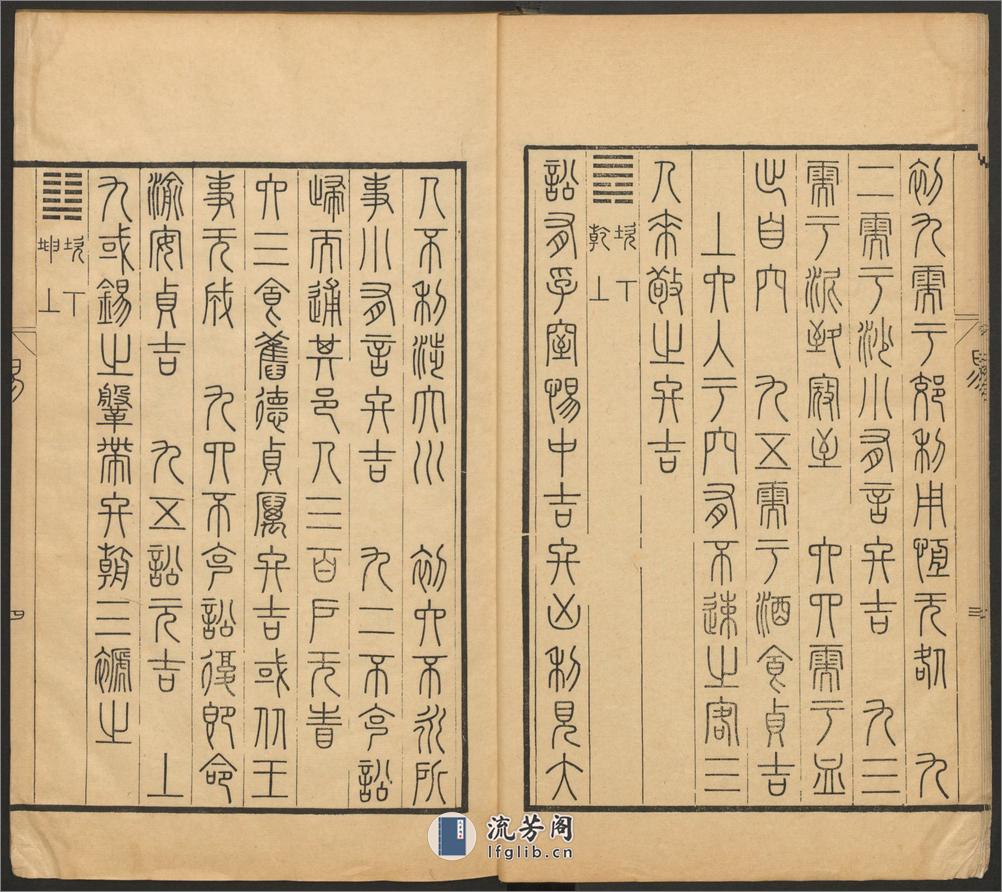 初九需于郊利用恆无咎　九
二需于沙小有言終吉　九三
需于泥致寇至　六四需于血
出自穴　九五需于酒食貞吉
上六入于穴有不速之客三
人來敬之終吉
䷅ 坎下乾上
訟有孚窒惕中吉終凶利見大
易
三
人不利涉大川　初六不永所
事小有言終吉　九二不克訟
歸而逋其邑人三百戶无眚
六三食舊德貞厲終吉或从王
事无成　九四不克訟復即命
渝安貞吉　九五訟元吉　上
九或錫之鞶帶終朝三褫之
䷆ 坎下坤上
易
四
流芳阁
lfglib.cn